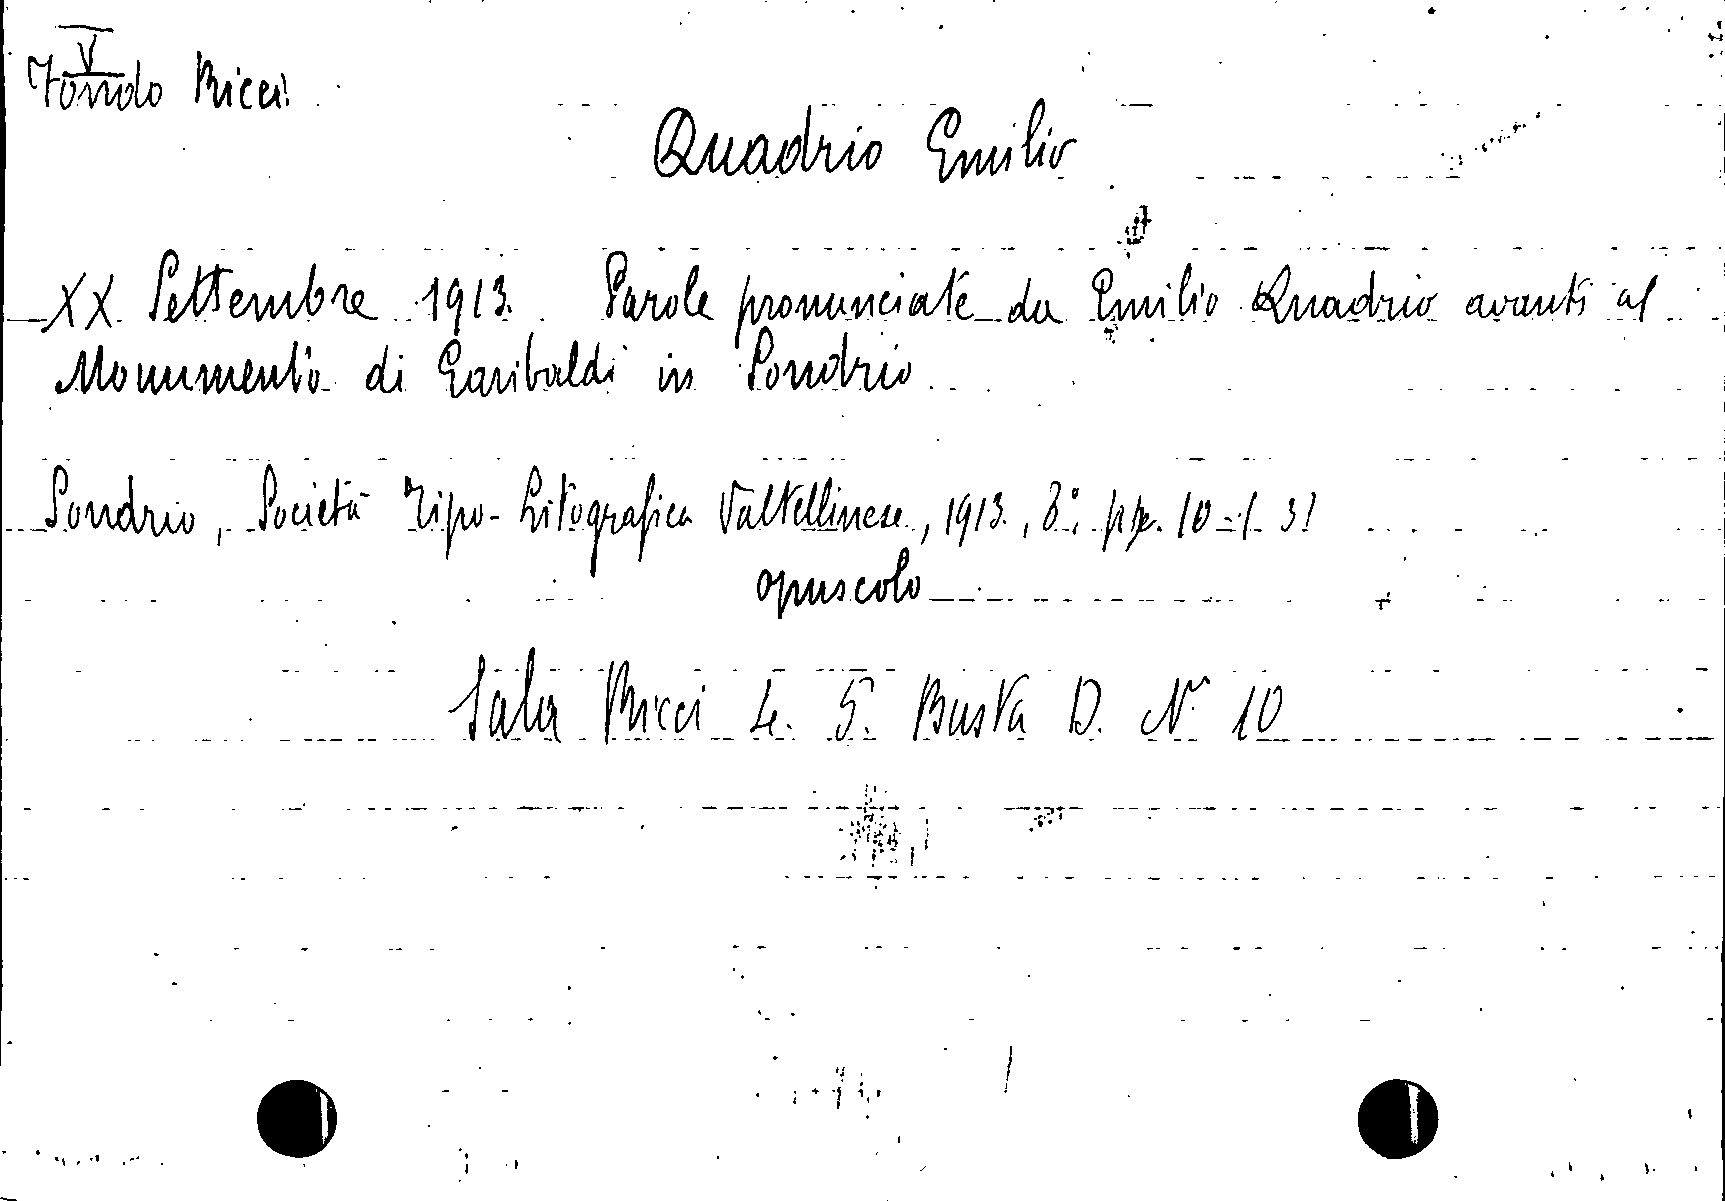 V
Fondo Ricci
Quadrio Emilio
XX Settembre 1913. Parole pronunciate da Emilio Quadrio avanti al
Monumento di Garibaldi in Sondrio
Sondrio, Società Tipo-Litografica Valtellinese, 1913, 8°, pp. 10
opuscolo
Sala Ricci L. 5. Busta D. N. 10